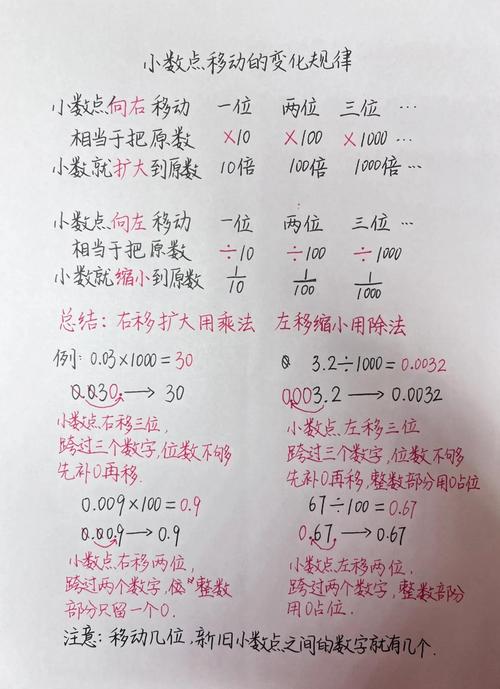 小数点移动的变化规律
小数点向右移动 一位 两位 三位 …
相当于把原数 ×10 ×100 ×1000 …
小数就扩大到原数 10倍 100倍 1000倍 …
小数点向左移动 一位 两位 三位 …
相当于把原数 ÷10 ÷100 ÷1000
小数就缩小到原数 1/10 1/100 1/1000
总结：右移扩大用乘法 左移缩小用除法
例：0.03×1000=30
0.030. → 30
小数点右移三位，
跨过三个数字，位数不够
先补0再移.
0.009×100=0.9
0.009 → 0.9
小数点右移两位，
跨过两个数字，整数
部分只留一个0.
3.2÷1000=0.0032
0.003.2 → 0.0032
小数点左移三位
跨过三个数字，位数不够
先补0再移，整数部分用0占位
67÷100=0.67
0.67. → 0.67
小数点左移两位，
跨过两个数字，整数部分
用0占位.
注意：移动几位，新旧小数点之间的数字就有几个.